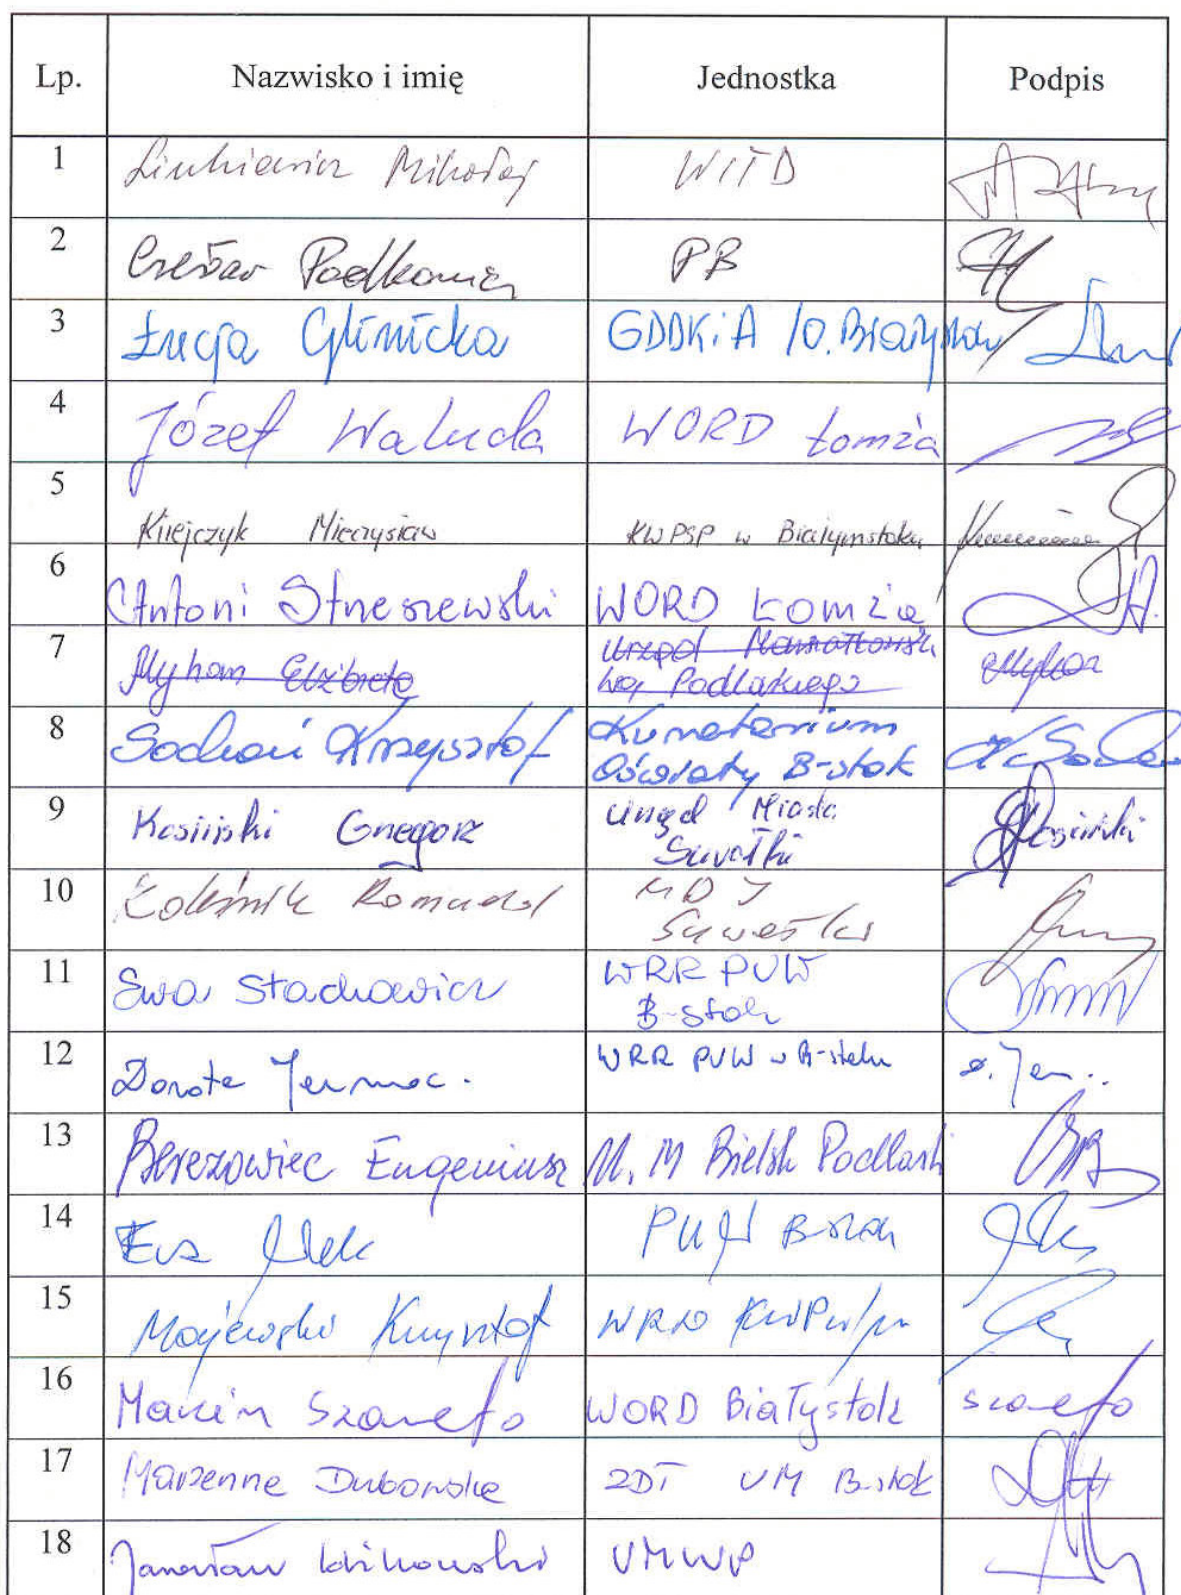 Lp. Nazwisko i imię Jednostka Podpis
1 Mikołaj WITD
2 Czesław Podkowicz PB
3 Łucja Glinicka GDDKiA /O. Białystok
4 Józef Waluda WORD Łomża
5 Kiiejczyk Mieczysław KWPSP w Białymstoku
6 Antoni WORD Łomża
7 Elżbieta Urząd Marszałkowski
Woj Podlaskiego
8 Sochoń Krzysztof Kuratorium
Oświaty B-stok
9 Kosiński Grzegorz Urząd Miasta
Suwałki Kosiński
10 Romuald
Suwałki
11 Ewa Stachowicz WRR PUW
B-stok
12 Dorota WRR PUW w B-stoku
13 Berezowiec Eugeniusz U.M Bielsk Podlaski
14 Ewa PUW
15 Majewski Krzysztof WRD
16 Marcin Szarefo WORD Białystok Szarefo
17 Marzenna Dubowska ZDT UM B-stok
18 Jarosław UMWP